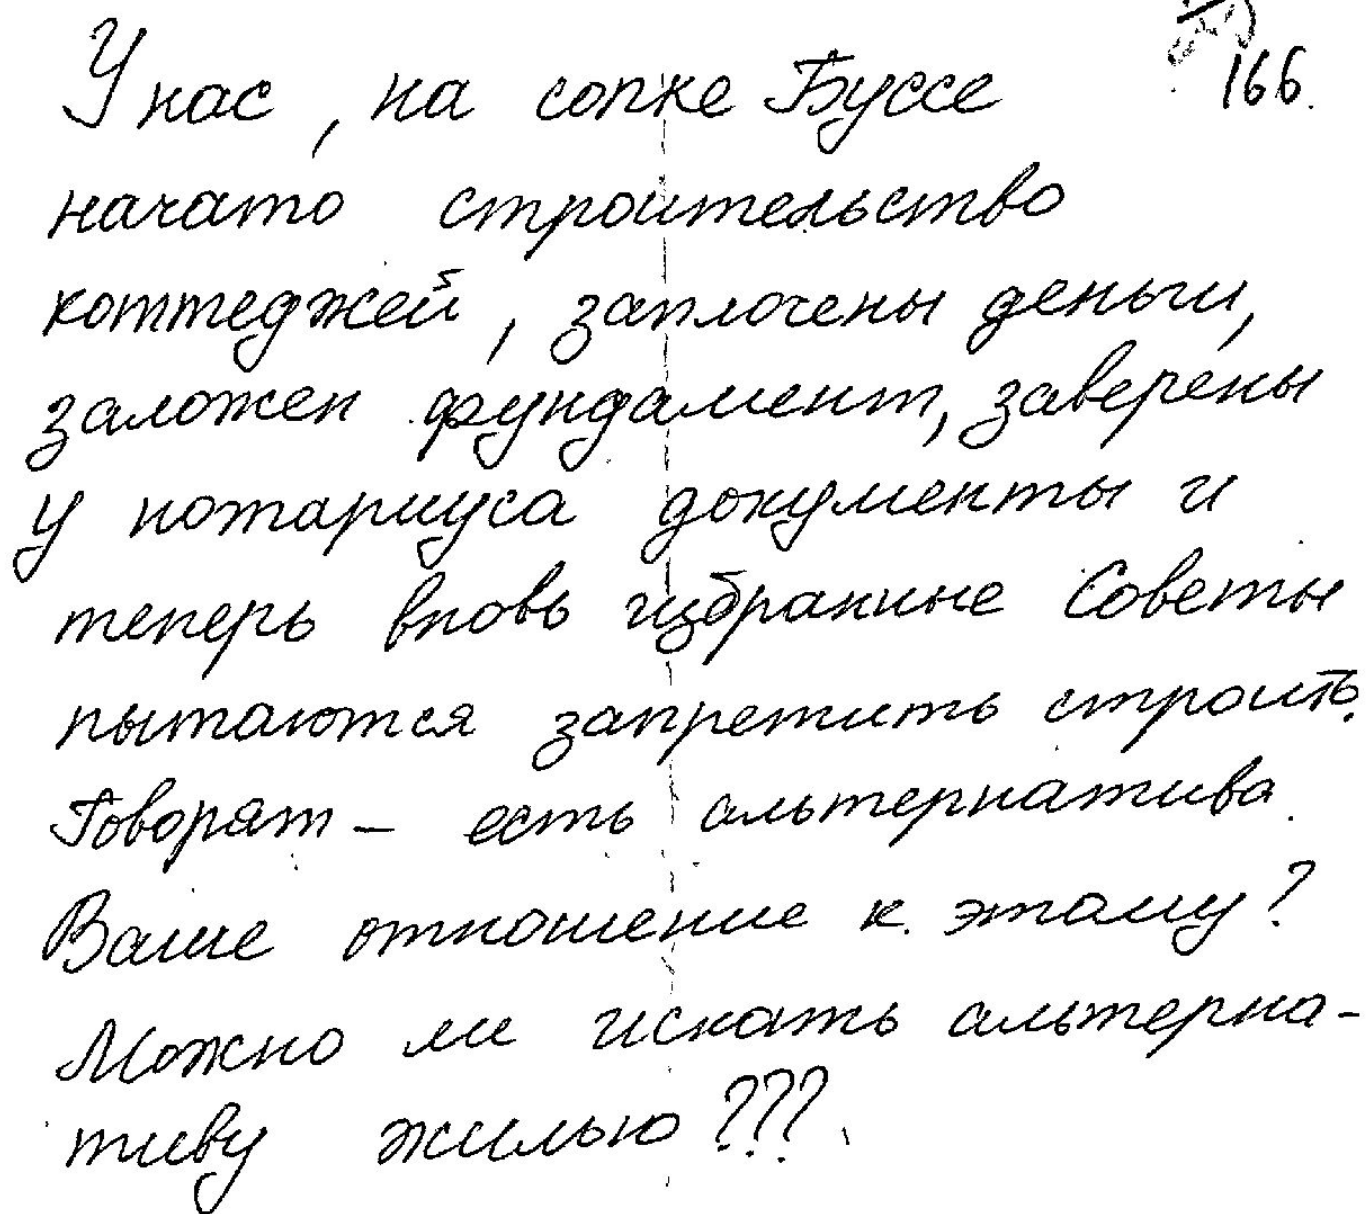 166.
У нас, на сопке Буссе
начато строительство
коттеджей, заплочены деньги,
заложен фундамент, заверены
у нотариуса документы и
теперь вновь избранные Советы
пытаются запретить строить.
Говорят – есть альтернатива.
Ваше отношение к этому?
Можно ли искать альтерна-
тиву жилью???